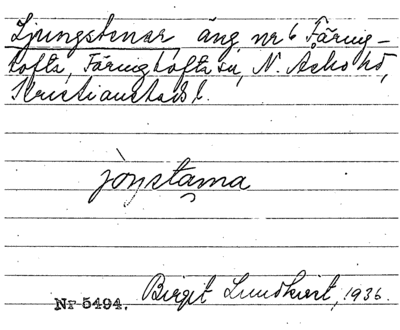 Ljungstenar, äng, nr 6 Färing-
tofta, Färingtofta sn, N. Åsbo hd,
Kristianstads l.
jöŋstəna
Nr 5494. Birgit Lundkvist, 1936.